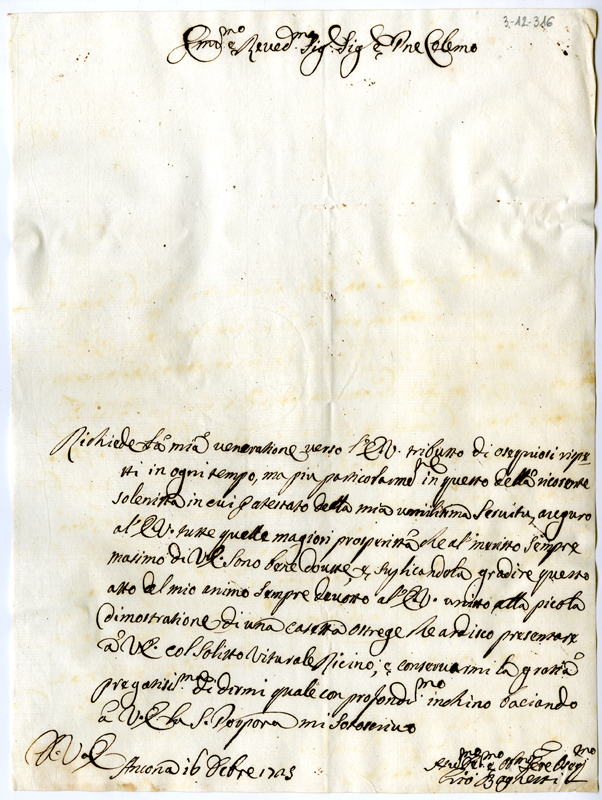 3-12-316
Em.mo e Reved.mo Sig. Sig. e Pne Colemo
Richiede la mia veneratione verso l'E.V. tributto di osequiosi rispe-
tti in ogni tempo, ma più particolarme.te in questo della ricorente
solenittà in cui p atestato della mia umilisima servitu, auguro
al'E.V. tutte quelle magiori prosperittà che al' meritto sempre
masimo di V.E. sono bene doutte e, suplicandola gradire questo
atto del mio animo sempre devotto al'E.V. unitto alla picola
dimostratione di una casetta ostreghe che ardisco presentare
à V.E. col solitto Viturale Picino, e conservarmi la grattia
pregatisi.ma di dirmi quale con profondi.mo inchino baciando
à V.E. la S. Porpora mi sotoscrivo
D. V. E.
Ancona 16 Xcbre 1725
Gio Baghetti